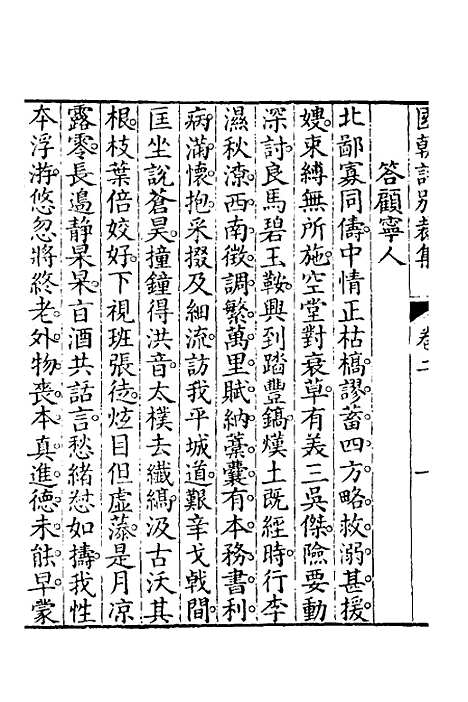 國朝詩別裁集 卷二 一
答顧寧人
北鄙寡同儔中情正枯槁謬蓄四方略救溺甚援
嫂束縛無所施空堂對衰草有美三吳傑險要動
深討良馬碧玉鞍興到踏豐鎬熯土既經時行李
濕秋潦西南徵調繁萬里賦納藁囊有本務書利
病滿懷抱采掇及細流訪我平城道艱辛戈戟間
匡坐說蒼昊撞鐘得洪音太樸去纖縞汲古沃其
根枝葉倍姣好下視班張徒炫目但虛藻是月凉
露零長邉靜杲杲百酒共話言愁緒怼如擣我性
本浮游悠忽將終老外物喪本真進德未能早蒙